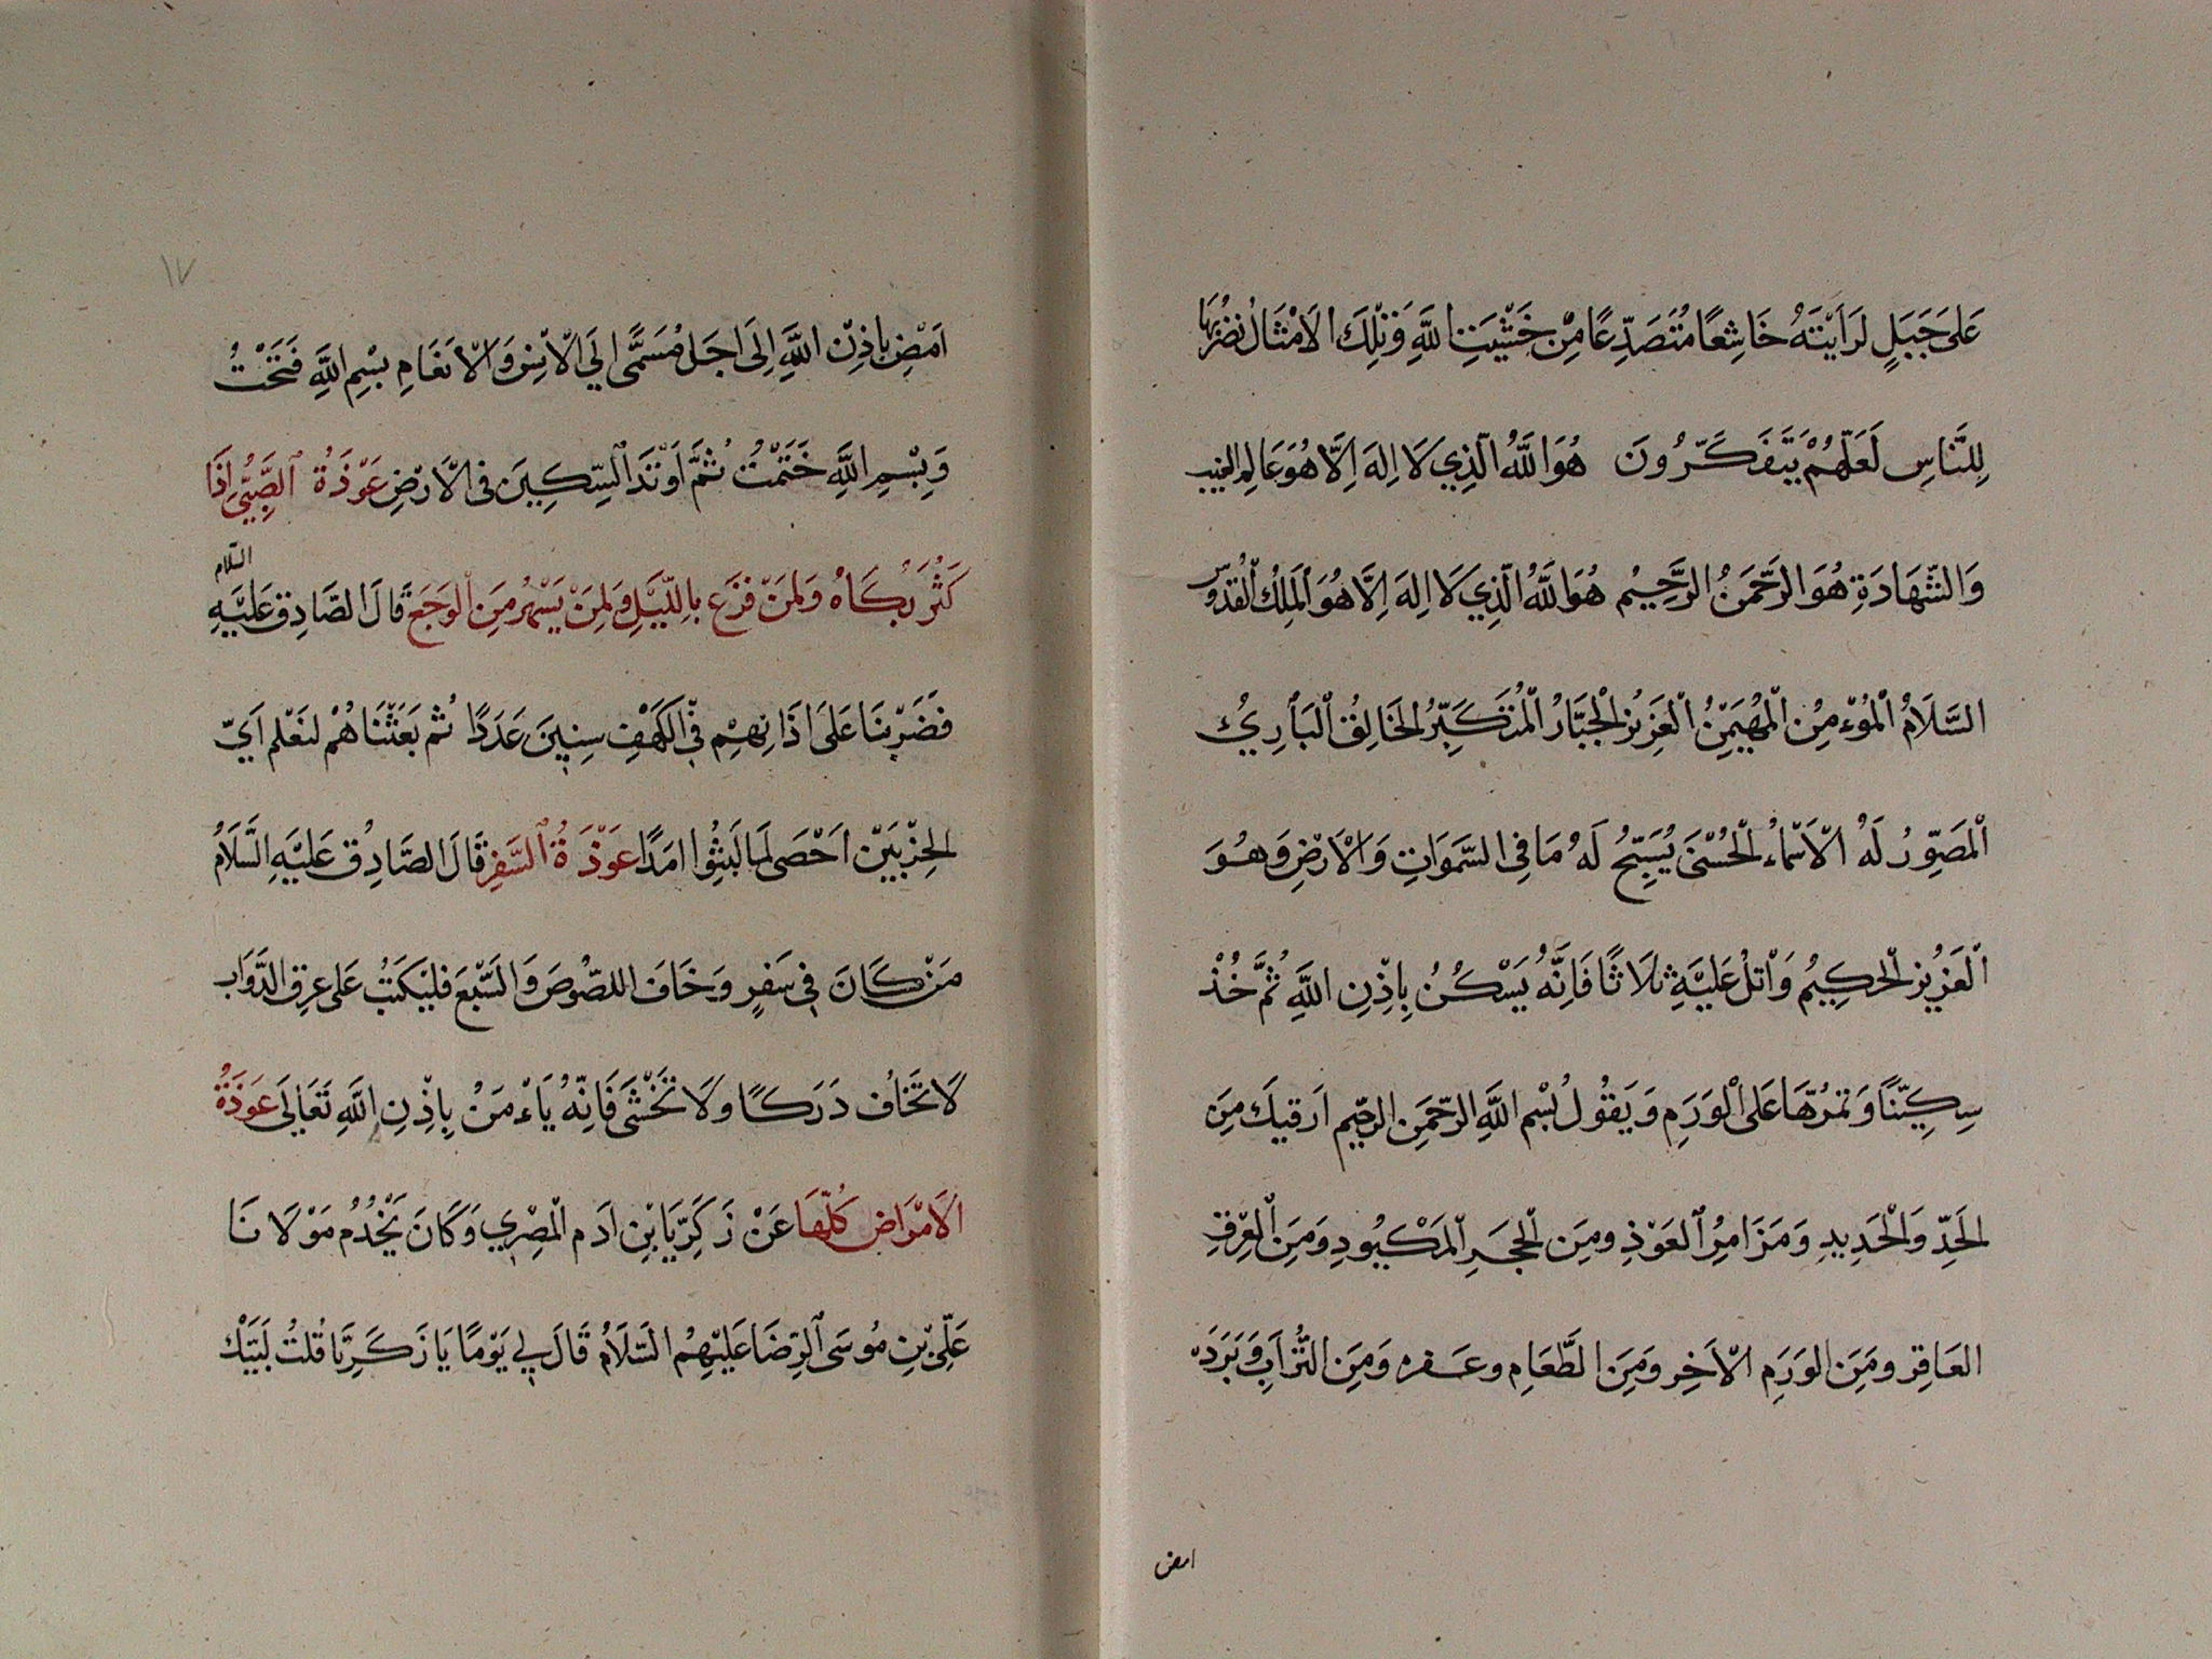 عَلَى جَبَلٍ لَرَاَيْتَهُ خَاشِعًا مُتَصَدِّعًا مِنْ خَشْيَتِ اللَّهِ وَتِلْكَ الاَمْثَالُ نَضْرِبُهَا
لِلنَّاسِ لَعَلَّهُمْ يَتَفَكَّرُونَ هُوَ اللَّهُ الَّذِي لَا اِلهَ اِلَّا هُوَ عَالِمُ الغَيْبِ
وَالشَّهَادَةِ هُوَ الرَّحْمَنُ الرَّحِيْمُ هُوَ اللَّهُ الَّذِي لَا اِلهَ اِلَّا هُوَ الْمَلِكُ الْقُدُّوسُ
السَّلَامُ الْمُوْءمِنُ الْمُهَيْمِنُ الْعَزِيْزُ الْجَبَّارُ الْمُتَكَبِّرُ الْخَالِقُ الْبَاْرِيُ
الْمُصَوِّرُ لَهُ الْاَسْمَاءُ الْحُسْنَى يُسَبِّحُ لَهُ مَا فِي السَّمَوَاتِ وَالْاَرْضِ وَهُوَ
الْعَزِيْزُ الْحَكِيْمُ وَاْتلُ عَلَيْهِ ثلَاثًا فَاِنَّهُ يَسْكُنُ بِاِذْنِ اللَّهِ ثُمَّ خُذْ
سِكِيّنًا وَتمُرّهَا عَلَى الْوَرَمِ وَيَقُولُ بِسْمِ اللَّهِ الرَّحْمَنِ الرحيم اَرقيكَ مِنَ
الحَدِّ وَالْحَدِيدِ وَمَزَامِرُ الْعَوْذِ ومِنَ الْحَجَرِ الْمَكْبُودِ وَمِنَ الْعِرْقِ
العَاقِر ومِنَ الوَرَمِ الْاَخِر ومِنَ الطَّعَامِ وعَـقره وَمِنَ التُّرَابِ وَبَرَدَهْ
امض
١٧
اَمْضِ بِاذِنْ اللَّهِ اِلَى اجَل مُسَمًّى الَي الْاِنِسْ وَالْاَنْعَامِ بِسْمِ اللَّهِ فَتَحْتُ
وَبِسْمِ اللَّهِ خَتَمْتُ ثُمَّ اَوْتدَ السِّكِينَ فى الْاَرْضِ عَوْذَةُ الصَّبِيِّ اِذَا
كَثُرَ بُكَاهُ وَلمِنَ فَزَعَ بِاللَّيْلِ وَلمِنَ يَسْهرُ مِنَ الْوَجَعَ قَالَ الصَّادِق عَلَيْهِ السَّلام
فضَرَبْنَا عَلَى اذَانِهِمْ فِي الكَهْفِ سِنِينَ عَدَدًا ثُم بَعَثْنَاهُمْ لنَعْلم اَيّ
الحِزْبَيْن احَصَى لمَا لَبثُوا امَدًا عَوْذَةُ السَّفَرِ قَالَ الصَّادِق عَلَيْهِ السَّلَامُ
مَنْ كَانَ فِي سَفرٍ وَخَافَ اللصُّوصَ وَالسَّبْعَ فلْيَكتَبُ عَلى عرقِ الدَّوَاب
لَا تَخَاف دَرَكًا ولَا تَخْشَى فَاِنَّهُ يَاْءمَنُ بِاِذْنِ اللَّهِ تَعَالَى عَوَذَةُ
الَامْرَاض كُلّهَا عَنْ زَكَرِيَّا بْنِ ادَم الْمِصْرِي وَكَانَ يَخْدُمُ مَوْلَانَا
عَلِّيْ بْنِ مُوسَى الرِّضَا عَلَيْهِمُ السَّلَامُ قَالَ لِي يَوْمًا يَا زَكَرِيَّا قُلتُ لَبَيّكْ